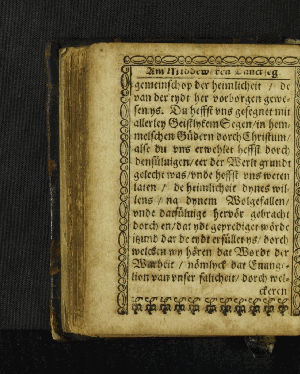 Am Middeweken Landtseg
gemeinschop der heimlicheit / de
van der tydt her vorborgen gewe-
sen ys. Du heffst vns gesegnet mit
allerley Geistlykem Segen / in hem-
melschen Güdern dorch Christum /
alse du vns erwehlet heffst dorch
densüluigen / eer der Werlt grundt
gelecht was / vnde heffst vns weten
laten / de heimlicheit dynes wil-
lens / na dynem Wolgefallen /
vnde datsüluige hervör gebracht
dorch en / dat ydt geprediget wörde
itzund dar de tydt erfüllet ys / dorch
welcken wy hören dat Wordt der
Warheit / nömlyck dat Euange-
lion van vnser salicheit / dorch wel-
ckeren